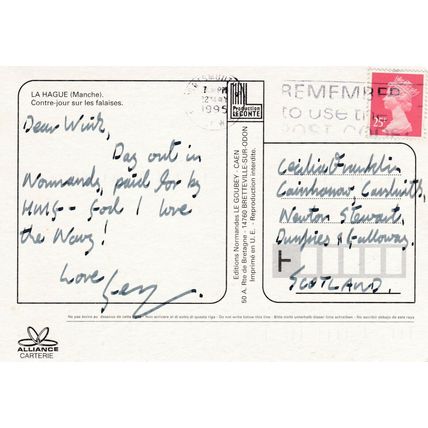 LA HAGUE (Manche).
Contre-jour sur les falaises.
Dear
Day out in
Normandy, paid for by
HMG - God I love
the Navy!
Love
PM
1995
REMEMBER
to use the
POST CODE
25
Production
LECONTE
Editions Normandes LE GOUBEY - CAEN
50 A, Rte de Bretagne - 14760 BRETTEVILLE-SUR-ODON
Imprimé en U.E. - Reproduction interdite.
Cecilia Franklin
Newton Stewart,
Dumfries & Galloway.
SCOTLAND.
T
Ne pas écrire au dessous de cette ligne - Do not write below this line - Bitte nicht unterhalb dieser linie schreiben
ALLIANCE
CARTERIE